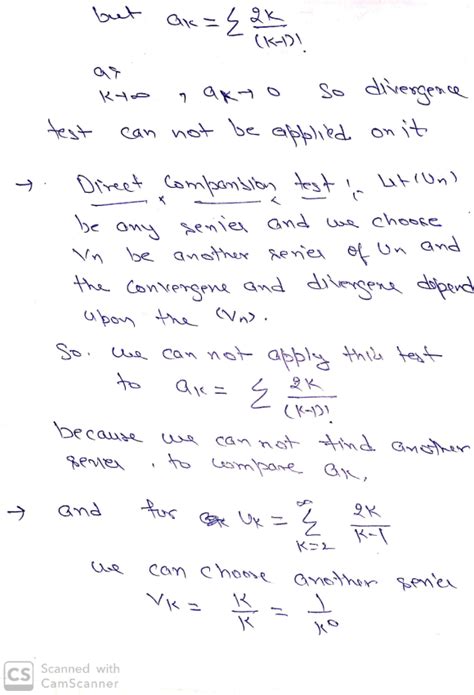 but aₖ = Σ 2K/(K-1)!
as
K→∞ , aₖ→0 so divergence
test can not be applied on it
→ · Direct Compansion test :- Let (Un)
be any series and we choose
Vn be another series of Un and
the convergene and divergene depend
upon the (Vn).
So. we can not apply this test
to aₖ = Σ 2K/(K-1)!
because we can not find another
series , to compare aₖ,
→ and for Uₖ = Σ_{K=2}^{∞} 2K/K-1
we can choose another series
Vₖ = K/K = 1/K⁰
CS Scanned with
CamScanner